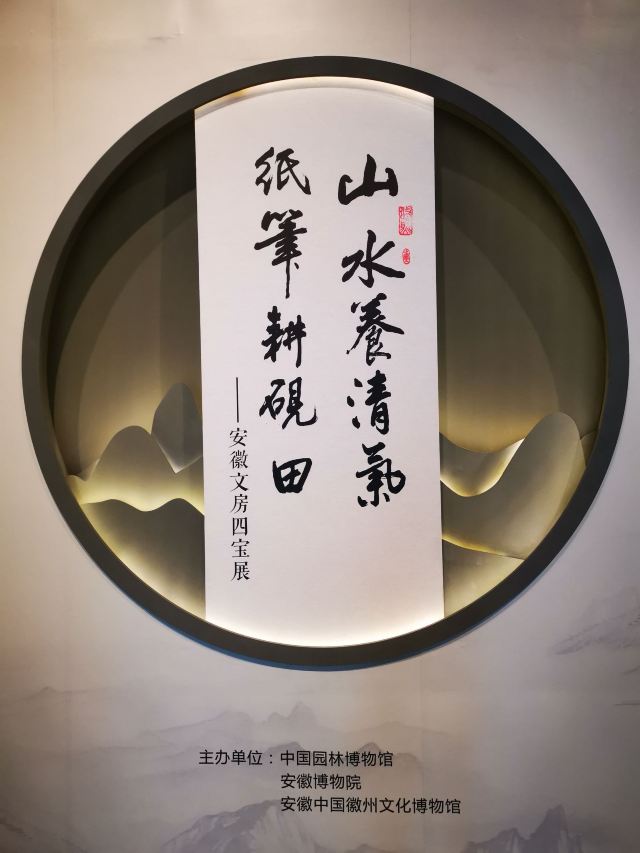 山水養清氣
紙筆耕硯田
——安徽文房四宝展
主办单位：中国园林博物馆
安徽博物院
安徽中国徽州文化博物馆